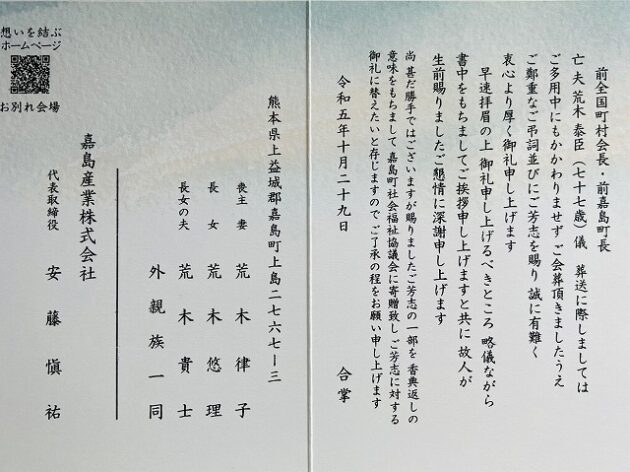 前全国町村会長・前嘉島町長
亡 夫 荒木 泰臣(七十七歳)儀 葬送に際しましては
ご多用中にもかかわりませず ご会葬頂きましたうえ
ご鄭重なご弔詞並びにご芳志を賜り 誠に有難く
衷心より厚く御礼申し上げます
早速拝眉の上 御礼申し上げるべきところ 略儀ながら
書中をもちましてご挨拶申し上げますと共に 故人が
生前賜りましたご懇情に深謝申し上げます
尚 甚だ勝手ではございますが賜りましたご芳志の一部を 香典返しの
意味をもちまして 嘉島町社会福祉協議会に寄贈致し ご芳志に対する
御礼に替えたいと存じますので ご了承の程をお願い申し上げます
令和五年十月二十九日 合掌
熊本県上益城郡嘉島町上島二七六七ー三
喪主 妻 荒木律子
長女 荒木悠理
長女の夫 荒木貴士
外親族一同
嘉島産業株式会社
代表取締役 安藤愼祐
想いを結ぶ
ホームページ
お別れ会場